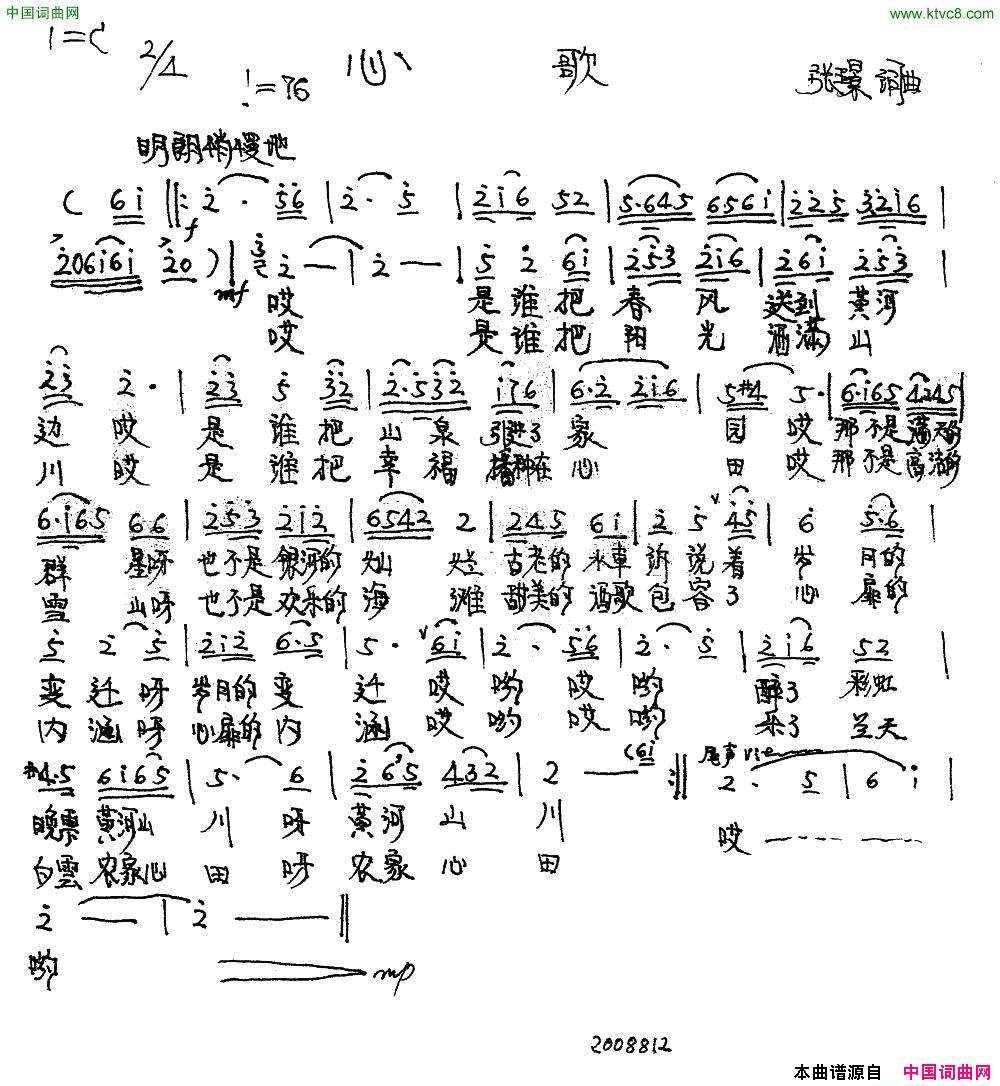 中国词曲网 www.ktvc8.com
1=C 2/4 心 歌 张璟 词曲
♩=76
明朗稍慢地
( 6i ‖: 2 · 56 | 2 · 5 | 2i6 52 | 5·645 656i | 225 32i6 |
206i6i 20 ) | 3 2 — | 2 — | 5 2 6i | 253 2i6 | 26i 253 |
f mf
哎 是谁把 春 风 送到 黄河
哎 是谁把 阳 光 洒满 山
23 2· | 23 5 32 | 2·532 i76 | 6·2 2i6 | 5#4 5· | 6·i65 4245 |
边 哎 是 谁 把 山 泉 引进了 家 园 哎 那不是 满天的
川 哎 是 谁 把 幸 福 播种在 心 田 哎 那不是 高洁的
6·i65 66 | 253 2i2 | 6542 2 | 245 6i | 2 5 45 | 6 5·6 |
群 星呀 也不是 银河的 灿 烂 古老的 水車 訴 说 着 岁 月的
雪 山呀 也不是 欢乐的 海 滩 甜美的 酒歌 包 容 了 心 扉的
5 2 5 | 2i2 6·5 | 5· 6i | 2 · 56 | 2 · 5 | 2i6 52 |
变 迁 呀 岁月的 变 迁 哎 哟 哎 哟 醉了 彩虹
内 涵 呀 心扉的 内 涵 哎 哟 哎 哟 乐了 兰天
#4·5 6i65 | 5· 6 | 2 65 432 | 2 — (6i :‖ 尾声 2· 5 | 6 i |
晚霞 黄河山 川 呀 黄河 山 川 哎
白雲 农家心 田 呀 农家 心 田
2 — | 2 — ‖
哟 mp
2008812
本曲谱源自 中国词曲网